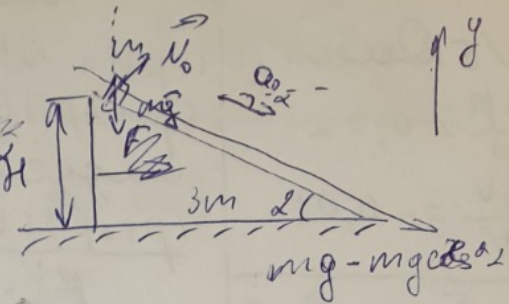 m
N₀
y
mg
H
3m
α
mg - mg cos²α